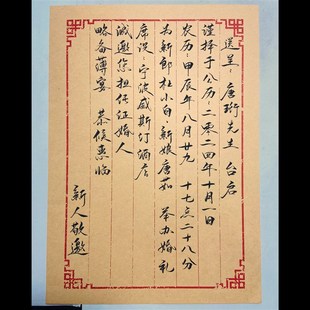 送呈：唐珩先生 台启
谨择于公历：二零二四年十月一日
农历：甲辰年八月廿九 十七点二十八分
为新郎杜小白 新娘唐茹 举办婚礼
席设：宁波威斯汀酒店
诚邀您担任证婚人
略备薄宴 恭候惠临
新人敬邀